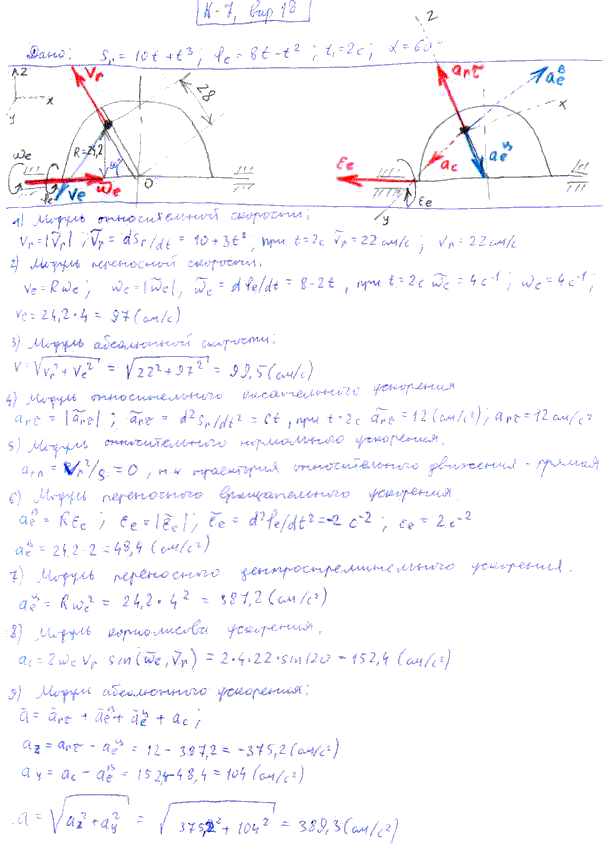 К-7, вар 18
Дано: Sr = 10t + t³; φe = 8t - t²; t₁ = 2c; α = 60°
z
z x y
Vr
28
R=24,2
ωe
φe
Ve
ω̄e
O
arτ
aeв
x
ac
aeц
εe
εe
y
1) Модуль относительной скорости:
Vr = |V̄r|; V̄r = dSr/dt = 10 + 3t², при t=2c V̄r = 22 см/с; Vr = 22 см/с
2) Модуль переносной скорости.
Ve = Rωe; ωe = |ω̄e|, ω̄e = dφe/dt = 8-2t, при t=2c ω̄e = 4c⁻¹; ωe = 4c⁻¹;
Ve = 24,2·4 = 97 (см/с)
3) Модуль абсолютной скорости:
V = √Vr² + Ve² = √22² + 97² = 99,5 (см/с)
4) Модуль относительного касательного ускорения
arτ = |ārτ|; ārτ = d²Sr/dt² = 6t, при t=2c ārτ = 12 (см/с²); arτ = 12 см/с²
5) Модуль относительного нормального ускорения.
arn = Vr²/ρ = 0, т.к траектория относительного движения - прямая
6) Модуль переносного вращательного ускорения.
aeв = Rεe; εe = |ε̄e|; ε̄e = d²φe/dt² = -2 c⁻²; εe = 2c⁻²
aeв = 24,2·2 = 48,4 (см/с²)
7) Модуль переносного центростремительного ускорения.
aeц = Rωe² = 24,2·4² = 387,2 (см/с²)
8) Модуль кориолисова ускорения.
ac = 2ωe Vr sin(ω̄e, V̄r) = 2·4·22·sin120 = 152,4 (см/с²)
9) Модуль абсолютного ускорения:
ā = ārτ + āeв + āeц + ac;
az = arτ - aeц = 12 - 387,2 = -375,2 (см/с²)
ay = ac - aeв = 152,4 - 48,4 = 104 (см/с²)
a = √az² + ay² = √375,2² + 104² = 389,3 (см/с²)